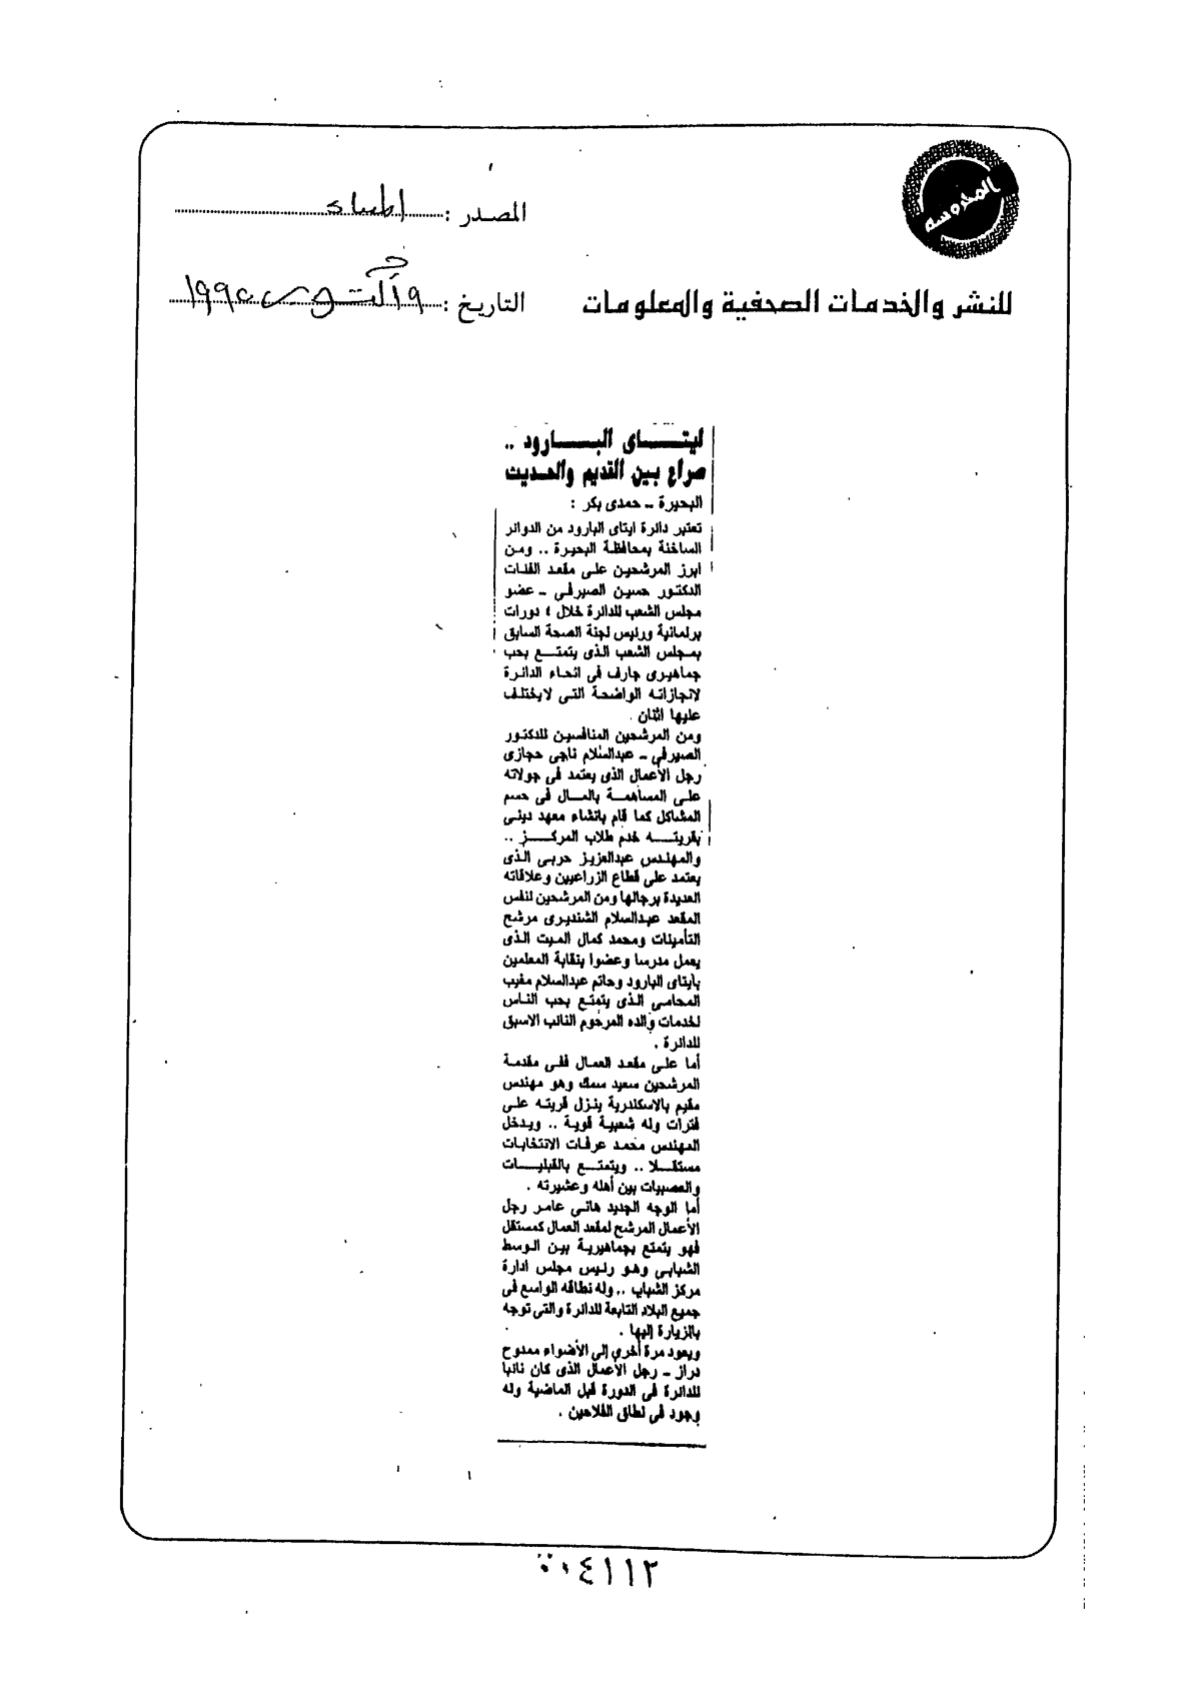 المحروسة
المصدر : المساء
للنشر والخدمات الصحفية والمعلومات
التاريخ : ١٩ أكتوبر ١٩٩٥
ايتاى البارود ..
صراع بين القديم والحديث
البحيرة - حمدى بكر :
تعتبر دائرة ايتاى البارود من الدوائر
الساخنة بمحافظة البحيرة .. ومن
ابرز المرشحين على مقعد الفئات
الدكتور حسين الصيرفى - عضو
مجلس الشعب للدائرة خلال ٤ دورات
برلمانية ورئيس لجنة الصحة السابق
بمجلس الشعب الذى يتمتع بحب
جماهيرى جارف فى انحاء الدائرة
لانجازاته الواضحة التى لايختلف
عليها اثنان .
ومن المرشحين المنافسين للدكتور
الصيرفى - عبدالسلام ناجى حجازى
رجل الأعمال الذى يعتمد فى جولاته
على المساهمة بالمال فى حسم
المشاكل كما قام بانشاء معهد دينى
بقريته خدم طلاب المركز ..
والمهندس عبدالعزيز حربى الذى
يعتمد على قطاع الزراعيين وعلاقاته
العديدة برجالها ومن المرشحين لنفس
المقعد عبدالسلام الشنديرى مرشح
التأمينات ومحمد كمال الميت الذى
يعمل مدرسا وعضوا بنقابة المعلمين
بايتاى البارود وحاتم عبدالسلام مغيب
المحامى الذى يتمتع بحب الناس
لخدمات والده المرحوم النائب الاسبق
للدائرة .
أما على مقعد العمال ففى مقدمة
المرشحين سعيد سمك وهو مهندس
مقيم بالاسكندرية ينزل قريته على
فترات وله شعبية قوية .. ويدخل
المهندس محمد عرفات الانتخابات
مستقلا .. ويتمتع بالقبليات
والعصبيات بين أهله وعشيرته .
أما الوجه الجديد هانى عامر رجل
الأعمال المرشح لمقعد العمال كمستقل
فهو يتمتع بجماهيرية بين الوسط
الشبابى وهو رئيس مجلس ادارة
مركز الشباب .. وله نطاقه الواسع فى
جميع البلاد التابعة للدائرة والتى توجه
بالزيارة إليها .
ويعود مرة أخرى إلى الأضواء ممدوح
دراز - رجل الأعمال الذى كان نائبا
للدائرة فى الدورة قبل الماضية وله
وجود فى نطاق الفلاحين .
٠٠٤١١٢